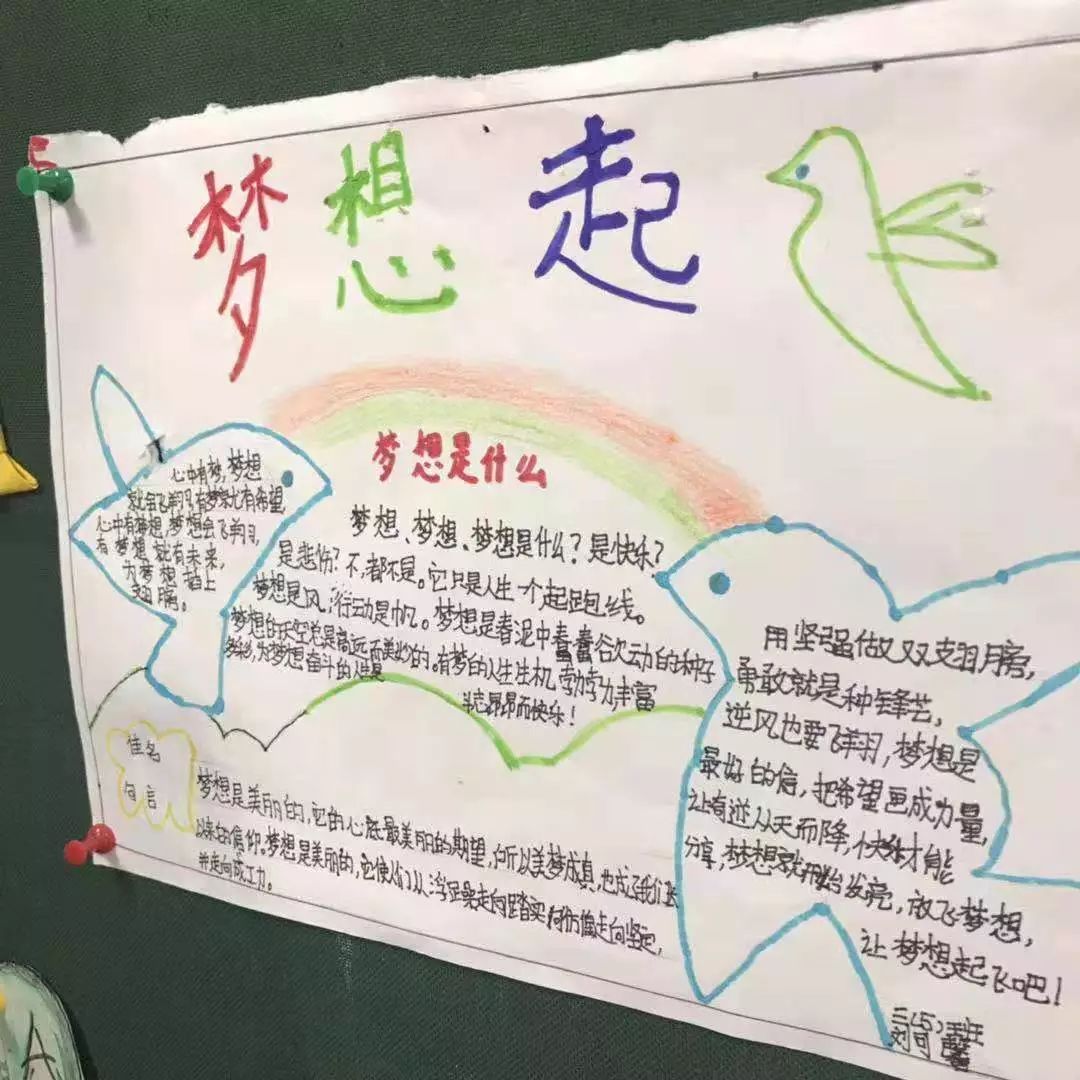 梦想起
梦想是什么
心中有梦,梦想
就会飞翔,有梦就有希望,
心中有梦想,梦想会飞翔,
有梦想就有未来,
为梦想插上
翅膀。
梦想、梦想、梦想是什么?是快乐?
是悲伤?不,都不是。它只是人生一个起跑线。
梦想是风,行动是帆。梦想是春泥中蠢蠢欲动的种子
梦想的天空总是高远而美妙的。有梦的人生生机勃勃,丰富
多彩,为梦想奋斗的人
斗志昂昂而快乐!
佳名
句言
梦想是美丽的,它的心底最美丽的期望,所以美梦成真,也成了我们长
以来的信仰。梦想是美丽的,它使人们从浮躁走向踏实,走向坚定,
并走向成功。
用坚强做双翅膀,
勇敢就是种锋芒,
逆风也要飞翔,梦想是
最好的信,把希望画成力量,
让奇迹从天而降,快乐才能
分享,梦想就开始发亮,放飞梦想,
让梦想起飞吧!
三(5)班
刘可馨
A